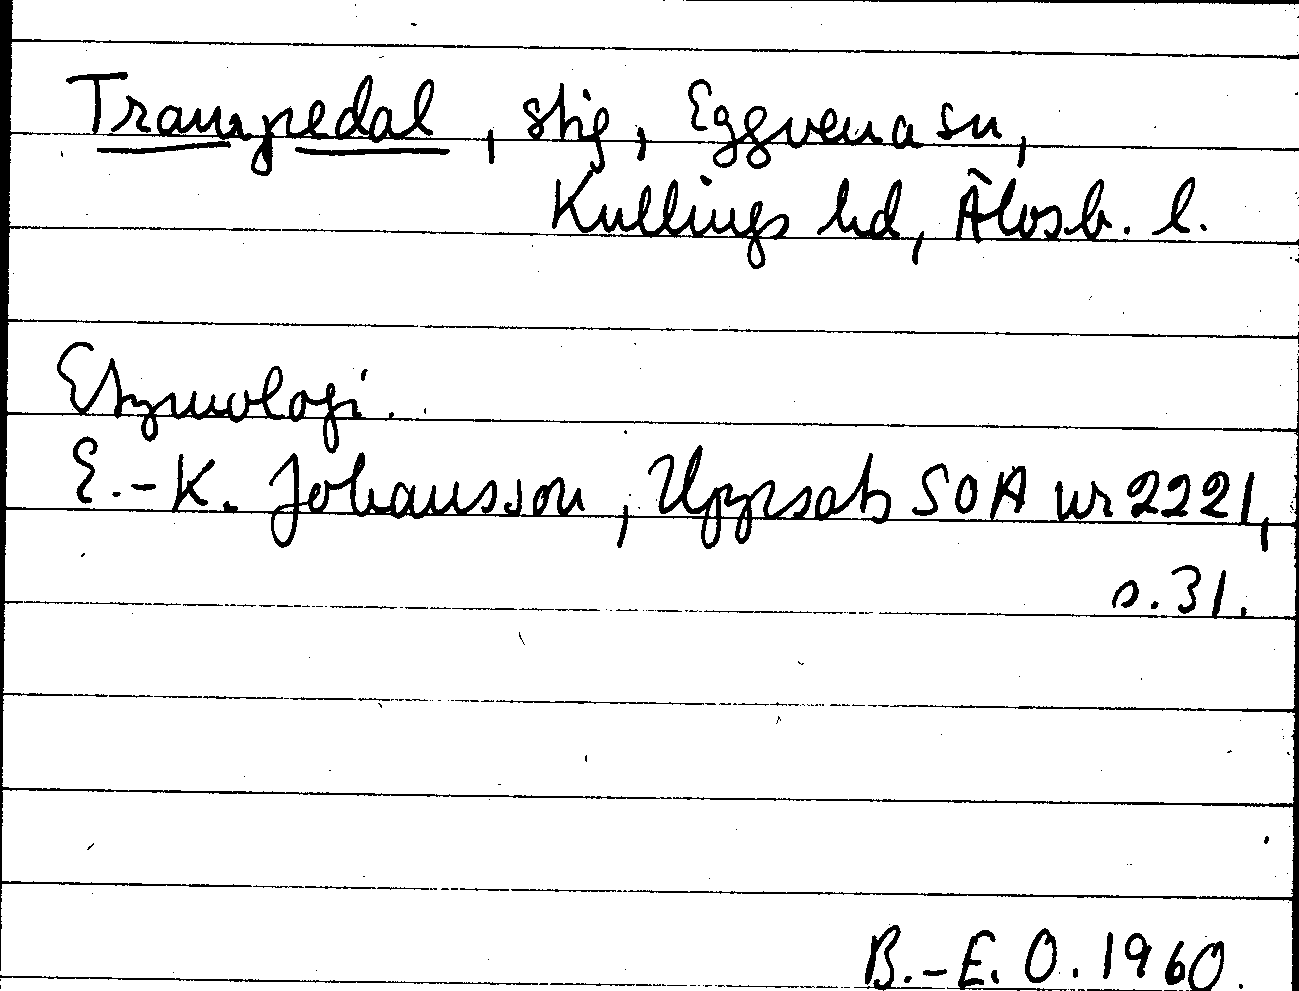 Transpedal, stig, Eggvena sn,
Kullings hd, Älvsb. l.
Etymologi.
E.-K. Johansson, Uppsats SOA nr 2221,
s. 31.
B.-E. O. 1960.